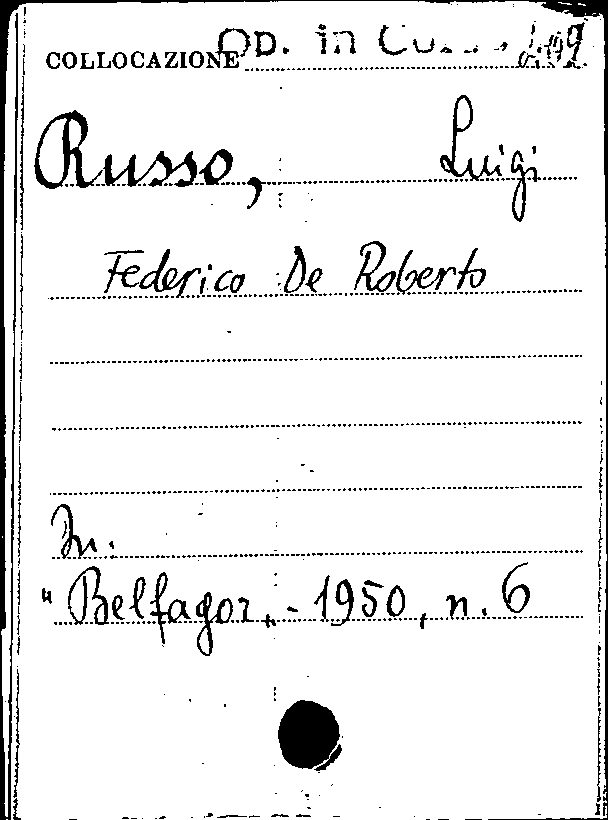 COLLOCAZIONE Op. in
Russo, Luigi
Federico De Roberto
In:
"Belfagor„ - 1950, n. 6